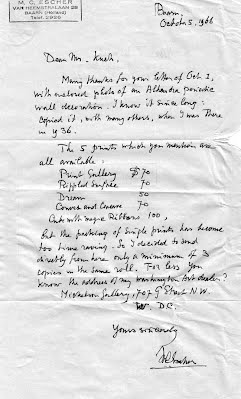 M. C. ESCHER
VAN HEEMSTRALAAN 28
BAARN (Holland)
Telef. 2925
Baarn,
October 5, 1966
Dear Mr.
Many thanks for your letter of Oct. 1,
with enclosed photo of an Alhambra periodic
wall decoration. I know it since long:
copied it, with many others, when I was there
in 1936.
The 5 prints which you mention are
all available:
Print Gallery $ 70
Rippled Surface 70
Dream 50
Convex and Concave 70
Cube with magic Ribbons 100,
But the packing of single prints has become
too time raving. So I decided to send
directly from here only a minimum of 3
copies in the same roll. For less you
know the address of my Washington Art dealer?
Mickelson Gallery, 707 G Street N.W.
W. D.C.
Yours sincerely
MCEscher